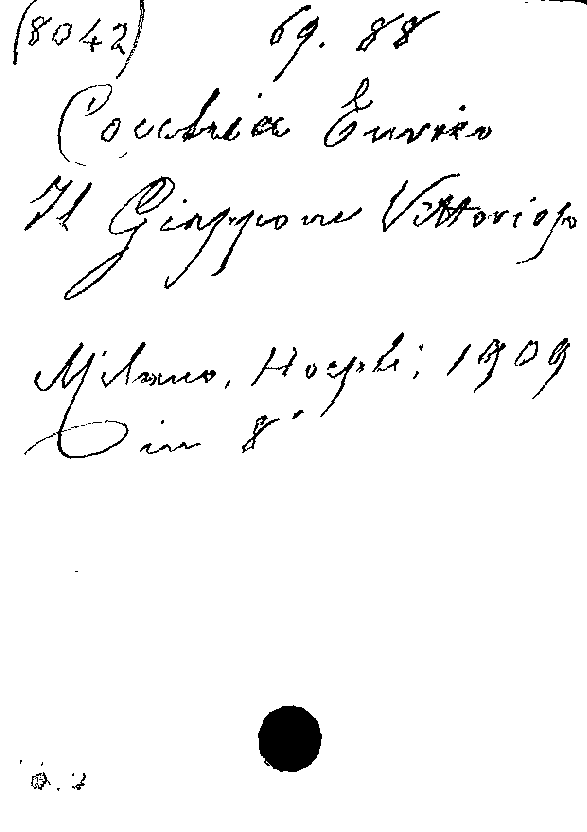 (8042) 69. 88
Cocchia Enrico
Il Giappone Vittorioso
Milano, Hoepli; 1909
in 8°